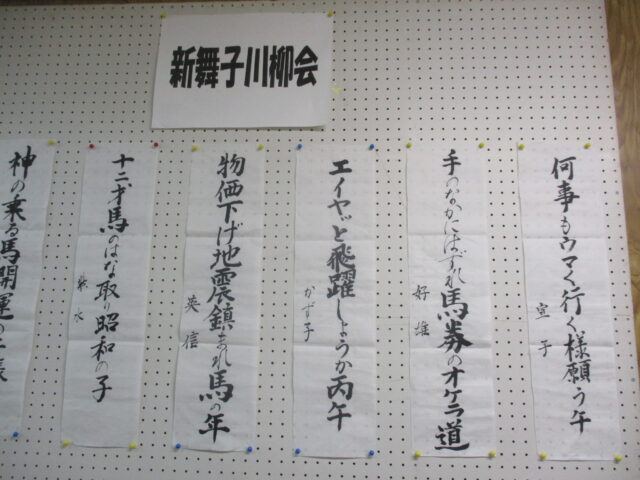 新舞子川柳会
何事もウマく行く様願う午
宣子
手のなかにはずれ馬券のオケラ道
好雄
エイヤッと飛躍しようか丙午
かず子
物価下げ地震鎮まれ馬の年
英信
十二才馬のはな取り昭和の子
水
神の乗る馬開運の